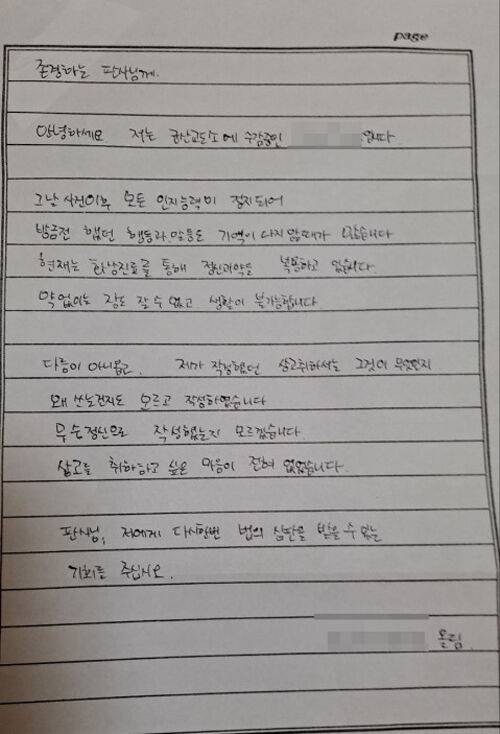 page
존경하는 판사님께.
안녕하세요 저는 군산교도소에 수감중인 입니다.
그날 사건이후 모든 인지능력이 정지되어
방금전 했던 행동과 말들도 기억이 나지 않을때가 많습니다
현재는 화상진료를 통해 정신과약을 복용하고 있습니다.
약 없이는 잠도 잘 수 없고 생활이 불가능합니다
다름이 아니옵고. 제가 작성했던 상고취하서는 그것이 무엇인지
왜 쓰는건지도 모르고 작성하였습니다
무슨정신으로 작성했는지 모르겠습니다.
상고를 취하하고 싶은 마음이 전혀 없었습니다.
판사님, 저에게 다시한번 법의 심판을 받을 수 있는
기회를 주십시오.
올림.